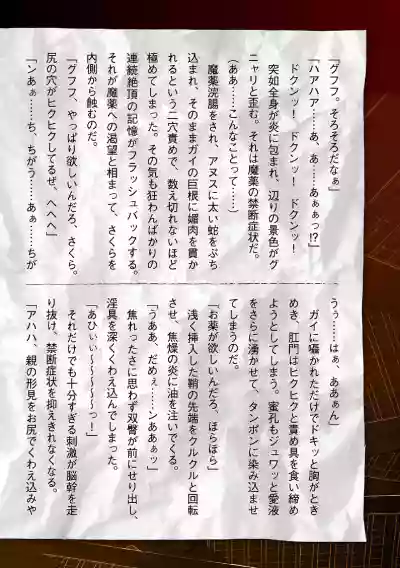 「グフフ。そろそろだなぁ」
「ハアハア……あ、あ……あぁぁっ!?」
ドクンッ！　ドクンッ！　ドクンッ！
突如全身が炎に包まれ、辺りの景色がグ
ニャリと歪む。それは魔薬の禁断症状だ。
（ああ……こんなことって……）
魔薬浣腸をされ、アヌスに太い蛇をぶち
込まれ、そのままガイの巨根に媚肉を貫か
れるという二穴責めで、数え切れないほど
極めてしまった。その気も狂わんばかりの
連続絶頂の記憶がフラッシュバックする。
それが魔薬への渇望と相まって、さくらを
内側から蝕むのだ。
「グフフ、やっぱり欲しいんだろ、さくら。
尻の穴がヒクヒクしてるぜ、へへへ」
「ンあぁ……ち、ちがう……あぁ……ちが
うぅ……はぁ、ああぁん」
ガイに囁かれただけでドキッと胸がとき
めき、肛門はヒクヒクと責め具を食い締め
ようとしてしまう。蜜孔もジュワッと愛液
をさらに湧かせて、タンポンに染み込ませ
てしまうのだ。
「お薬が欲しいんだろ、ほらほら」
浅く挿入した鞘の先端をクルクルと回転
させ、焦燥の炎に油を注いでくる。
「うああ、だめぇ……ンああぁッ」
焦れったさに思わず双臀が前にせり出し、
淫具を深くくわえ込んでしまった。
「あひぃぃ〜〜〜〜〜〜っ！」
それだけでも十分すぎる刺激が脳幹を走
り抜け、禁断症状を抑えきれなくなる。
「アハハ、親の形見をお尻でくわえ込みや